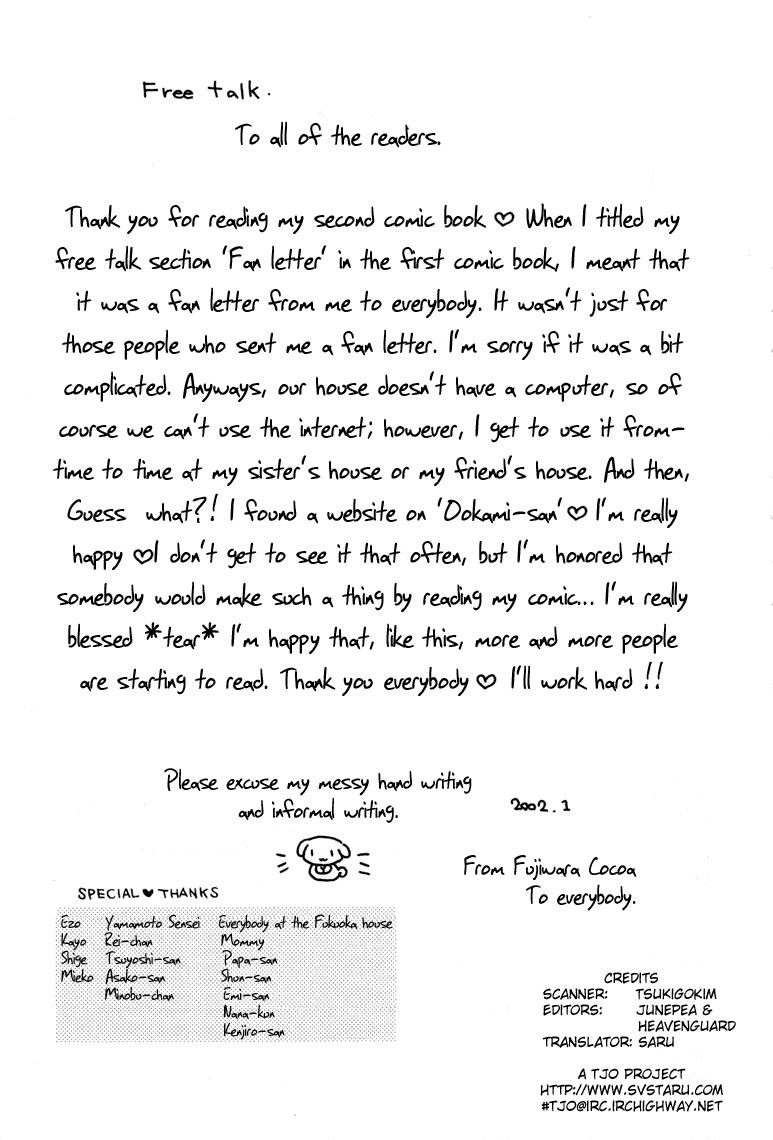 Free talk.
To all of the readers.
Thank you for reading my second comic book ♡ When I titled my
free talk section 'Fan letter' in the first comic book, I meant that
it was a fan letter from me to everybody. It wasn't just for
those people who sent me a fan letter. I'm sorry if it was a bit
complicated. Anyways, our house doesn't have a computer, so of
course we can't use the internet; however, I get to use it from-
time to time at my sister's house or my friend's house. And then,
Guess what?! I found a website on 'Ookami-san' ♡ I'm really
happy ♡I don't get to see it that often, but I'm honored that
somebody would make such a thing by reading my comic... I'm really
blessed *tear* I'm happy that, like this, more and more people
are starting to read. Thank you everybody ♡ I'll work hard !!
Please excuse my messy hand writing
and informal writing.
2002.1
From Fujiwara Cocoa
To everybody.
SPECIAL ♥ THANKS
Ezo Yamamoto Sensei Everybody at the Fukuoka house
Kayo Rei-chan Mommy
Shige Tsuyoshi-san Papa-san
Mieko Asako-san Shun-san
Minobu-chan Emi-san
Nana-kun
Kenjiro-san
CREDITS
SCANNER: TSUKIGOKIM
EDITORS: JUNEPEA &
HEAVENGUARD
TRANSLATOR: SARU
A TJO PROJECT
HTTP://WWW.SVSTARU.COM
#TJO@IRC.IRCHIGHWAY.NET